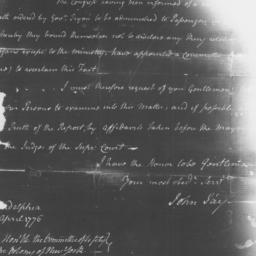 The Congress having been informed of a
Oath ordered by Govr. Tryon to be administred to
whereby they bound themselves not to disclose any thing
except to the ministry, have appointed a Committee
to ascertain this Fact.
I must therefore request of you Gentlemen
Persons to examine into this Matter, and if possible
Truth of the Report, by Affidavits taken before the Mayor
the Judges of the Supr. Court—
I have the Honor to be Gentlemen
Your most obedt. Servt
John Jay
delphia
April 1776
Honble the Committee of Safety
the Colony of New York